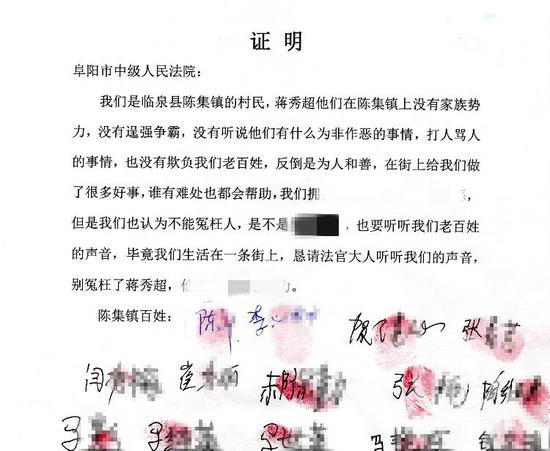 证 明
阜阳市中级人民法院：
我们是临泉县陈集镇的村民，蒋秀超他们在陈集镇上没有家族势
力，没有逞强争霸，没有听说他们有什么为非作恶的事情，打人骂人
的事情，也没有欺负我们老百姓，反倒是为人和善，在街上给我们做
了很多好事，谁有难处也都会帮助，我们拥
但是我们也认为不能冤枉人，是不是 ，也要听听我们老百姓
的声音，毕竟我们生活在一条街上，恳请法官大人听听我们的声音，
别冤枉了蒋秀超， 。
陈集镇百姓： 陈 李 张
闫 崔 张